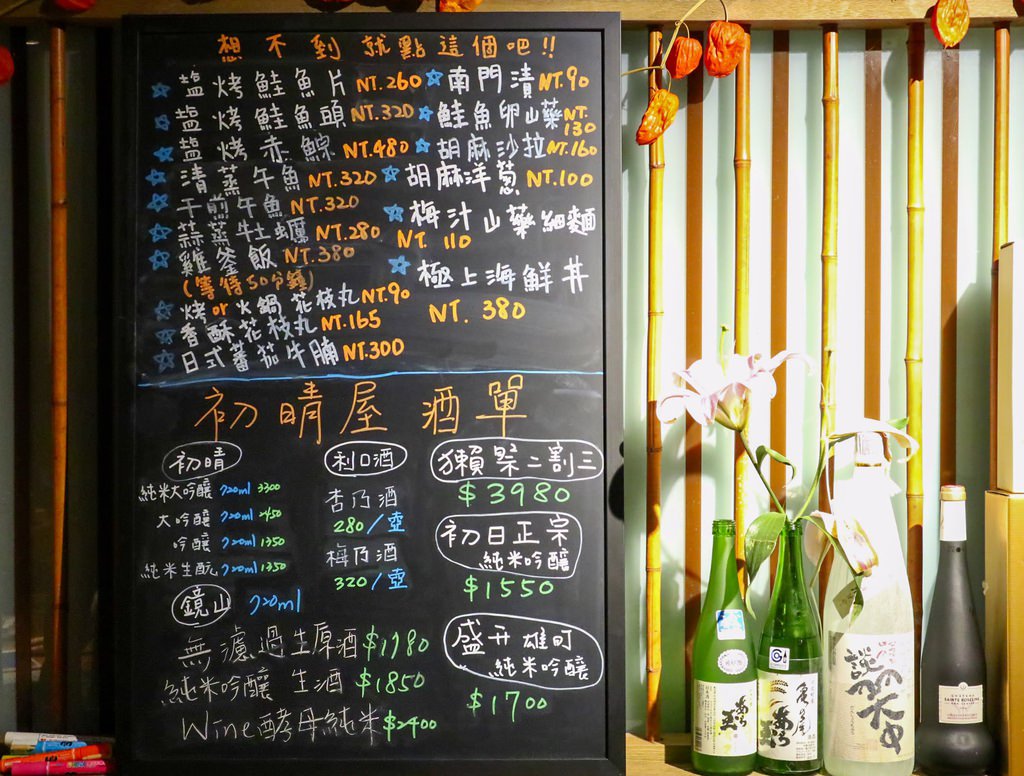 想不到就點這個吧!!
塩烤鮭魚片 NT.260
塩烤鮭魚頭 NT.320
塩烤赤鯮 NT.480
清蒸午魚 NT.320
干煎午魚 NT.320
蒜蒸牡蠣 NT.280
雞釜飯 NT.380
(等待50分鐘)
烤or火鍋花枝丸 NT.90
香酥花枝丸 NT.165
日式蕃茄牛腩 NT.300
南門漬 NT.90
鮭魚卵山藥 NT.130
胡麻沙拉 NT.160
胡麻洋蔥 NT.100
梅汁山藥細麵
NT. 110
極上海鮮丼
NT. 380
初晴屋 酒單
初晴
純米大吟釀 720ml 3300
大吟釀 720ml 2450
吟釀 720ml 1350
純米生酛 720ml 1350
鏡山 720ml
無濾過生原酒 $1780
純米吟釀 生酒 $1850
Wine酵母純米 $2400
利口酒
杏乃酒
280/壺
梅乃酒
320/壺
獺祭二割三
$3980
初日正宗
純米吟釀
$1550
盛升雄町
純米吟釀
$1700
亀の尾
SAINTE ROSELINE